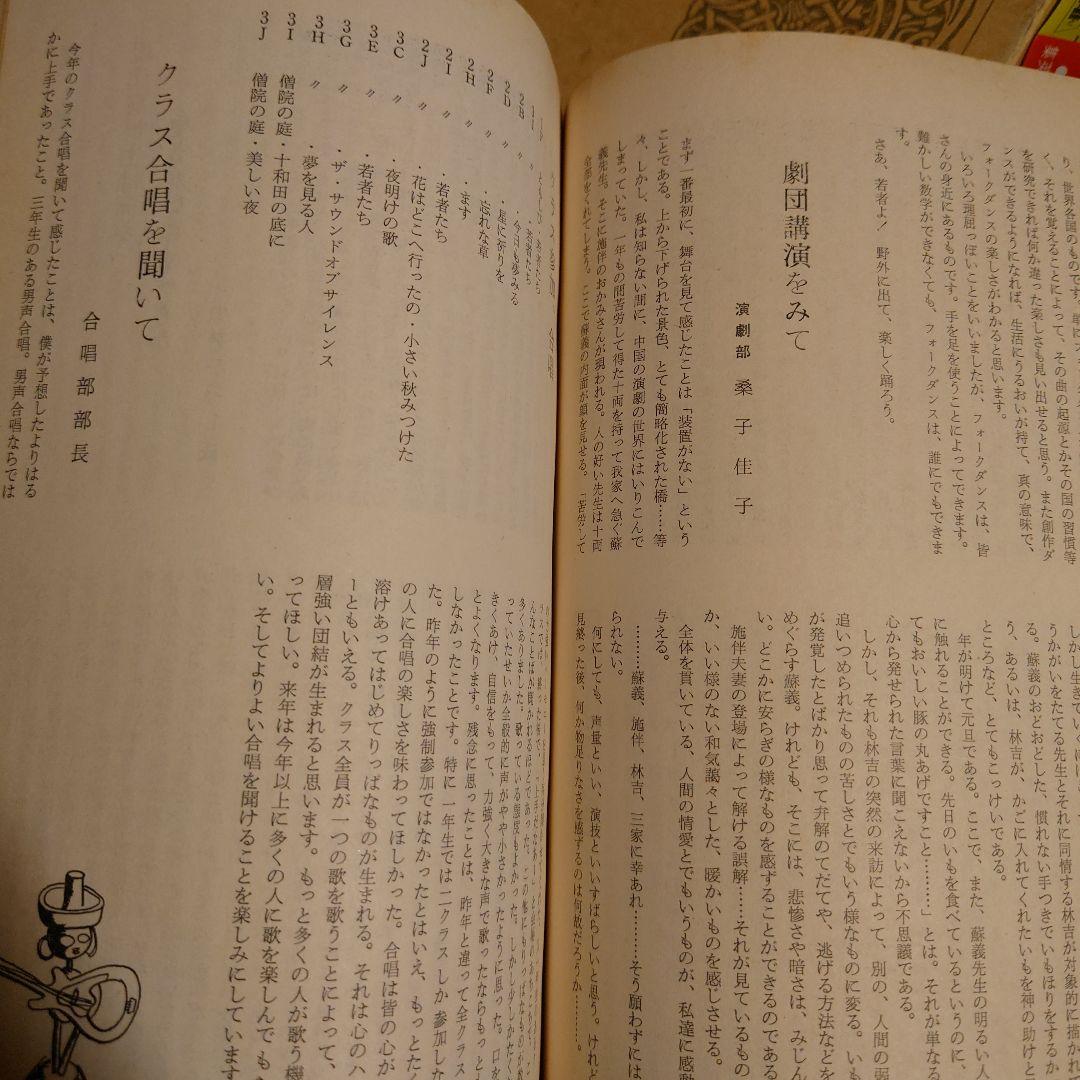 り、世界各国のものです。単に
く、それを覚えることによって、その曲の起源とかその国の習慣等
を研究できれば何か違った楽しさも見い出せると思う。また創作ダ
ンスができるようになれば、生活にうるおいが持て、真の意味で、
フォークダンスの楽しさがわかると思います。
いろいろ理屈っぽいことをいいましたが、フォークダンスは、皆
さんの身近にあるものです。手を足を使うことによってできます。
難かしい数学ができなくても、フォークダンスは、誰にでもできま
す。
さあ、若者よ！　野外に出て、楽しく踊ろう。
劇団講演をみて
演劇部　桑子佳子
まず一番最初に、舞台を見て感じたことは「装置がない」という
ことである。上から下げられた景色、とても簡略化された橋……等
々、しかし、私は知らない間に、中国の演劇の世界にはいりこんで
しまっていた。一年もの間苦労して得た十両を持って我家へ急ぐ蘇
義先生。そこに施伴のおかみさんが現われる。人の好い先生は十両
全部をくれてしまう。ここで蘇義の内面が顔を見せる。「苦労して
うかがいをたてる先生とそれに同情する林吉が対象的に描かれて
る。蘇義のおどおどした、慣れない手つきでいもほりをするか
う、あるいは、林吉が、かごに入れてくれたいもを神の助けと
ところなど、とてもこっけいである。
年が明けて元旦である。ここで、また、蘇義先生の明るい人
に触れることができる。先日のいもを食べているというのに、
てもおいしい豚の丸あげですこと………」とは。それが単なる
心から発せられた言葉に聞こえないから不思議である。
しかし、それも林吉の突然の来訪によって、別の、人間の弱
追いつめられたものの苦しさとでもいう様なものに変る。いも
が発覚したとばかり思って弁解のてだてや、逃げる方法などを
めぐらす蘇義。けれども、そこには、悲惨さや暗さは、みじん
い。どこかに安らぎの様なものを感ずることができるのである
施伴夫妻の登場によって解ける誤解……それが見ているもの
か、いい様のない和気藹々とした、暖かいものを感じさせる。
全体を貫いている、人間の情愛とでもいうものが、私達に感動
与える。
………蘇義、施伴、林吉、三家に幸あれ………そう願わずには
られない。
何にしても、声量といい、演技といいすばらしいと思う。けれど
見終った後、何か物足りなさを感ずるのは何故だろうか……。
2B
2D　〃　・今日も夢みる
2F　〃　・星に祈りを
2H　〃　・忘れな草
2I　〃　・ます
2J　〃　・若者たち
3C　〃　・花はどこへ行ったの・小さい秋みつけた
3E　〃　・夜明けの歌
3G　〃　・若者たち
3H　〃　・ザ・サウンドオブサイレンス
3I　僧院の庭・十和田の底に
3J　僧院の庭・美しい夜
・夢を見る人
クラス合唱を聞いて
合唱部部長
今年のクラス合唱を聞いて感じたことは、僕が予想したよりはる
かに上手であったこと。三年生のある男声合唱。男声合唱ならでは
多くありました。歌っている態度もよかった。しかし少ししかたくな
っていたせいか全般的に声がやや小さかったように思った。口を
きくあけ、自信をもって、力強く大きな声で歌ったならもっと
とよくなります。残念に思ったことは、昨年と違って全クラス
しなかったことです。特に一年生では二クラスしか参加しな
た。昨年のように強制参加ではなかったとはいえ、もっとたく
の人に合唱の楽しさを味わってほしかった。合唱は皆の心が
溶けあってはじめてりっぱなものが生まれる。それは心のハ
ーともいえる。クラス全員が一つの歌を歌うことによって、
層強い団結が生まれると思います。もっと多くの人が歌う機
ってほしい。来年は今年以上に多くの人に歌を楽しんで も
い。そしてよりよい合唱を聞けることを楽しみにしています